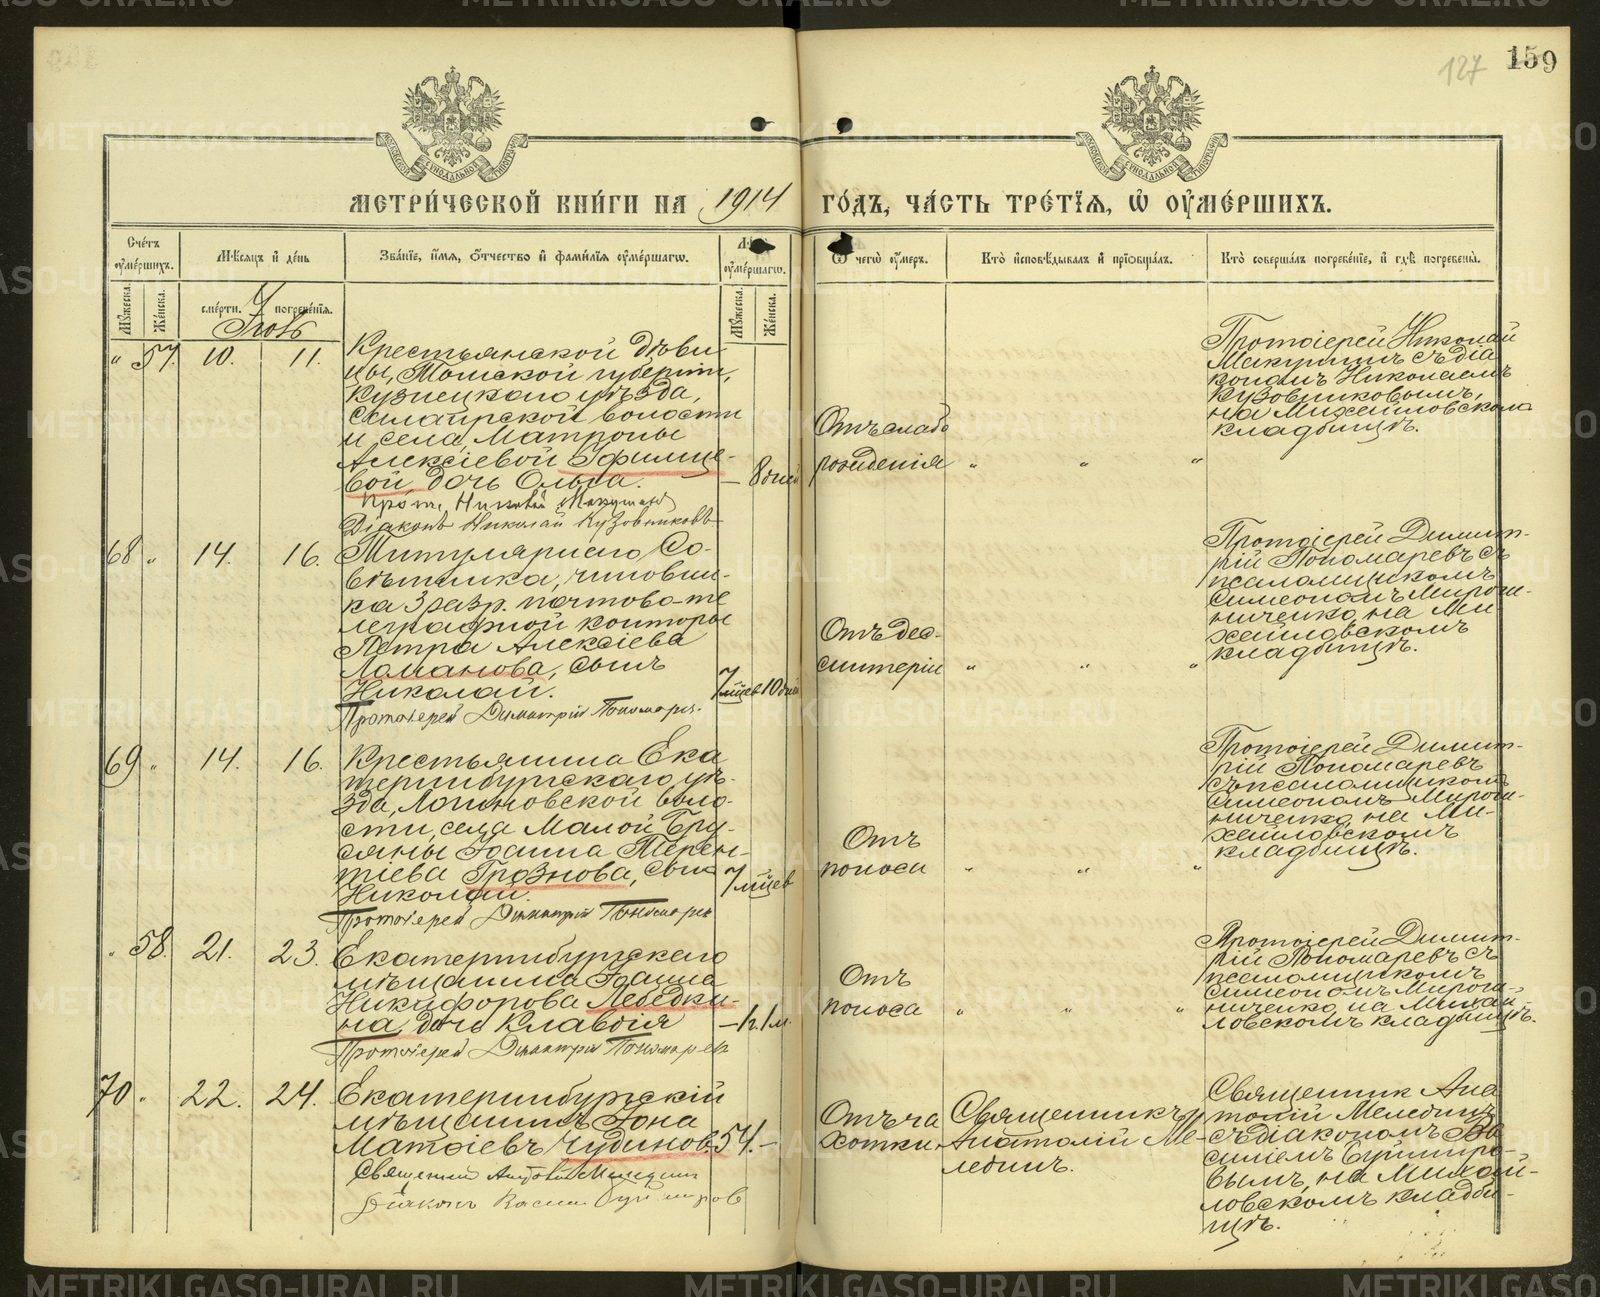 127 159
МЕТРИ́ЧЕСКОЙ КНИ́ГИ НА 1914 ГО́ДЪ, ЧА́СТЬ ТРЕ́ТЇѦ, Ѡ ОУМЕ́РШИХЪ.
Сче́тъ оуме́ршихъ.
Мѣ́сѧцъ и де́нь
Зва́нїе, и́мѧ, о́тчество и фами́лїѧ оуме́ршагѡ.
оуме́ршагѡ.
Ѿ чегѡ̀ оу́меръ.
Кто̀ исповѣ́дывалъ и прїобща́лъ.
Кто̀ соверша́лъ погребе́нїе, и гдѣ̀ погребены̀.
Мꙋ́жеска.
Же́нска.
сме́рти.
погребе́нїѧ.
Мꙋ́жеска.
Же́нска.
Іюль
" 57. 10. 11.
Крестьянской дѣви-
цы, Томской губерніи,
Кузнецкаго уѣзда,
Салаирской волости
и села, Матроны
Алексіевой
вой, дочь Ольга.
Прот. Николай Макушинъ
Діаконъ Николай Кузовниковъ
— 8 дней
Отъ слабо
рожденія " " "
Протоіерей Николай
Макушинъ съ діа
кономъ Николаемъ
Кузовниковымъ,
на Михайловскомъ
кладбищѣ.
68 " 14. 16.
Титулярнаго Со-
вѣтника, чиновни-
ка 3 разр. почтово-те
леграфной конторы
Петра Алексіева
Ломанова, сынъ
Николай.
Протоіерей Димитрій Пономаревъ.
7 мѣсцев 10 дней
Отъ дез-
ентеріи " " "
Протоіерей Димит-
рій Пономаревъ съ
псаломщикомъ
Симеономъ Мирош-
ниченко, на Ми
хайловскомъ
кладбищѣ.
69 " 14. 16.
Крестьянина Ека
теринбургскаго уѣ-
зда, Логиновской воло-
сти, села Малой Бру-
сяны Іоанна Терен-
тіева Грознова, сынъ
Николай.
Протоіерей Димитрій Пономаревъ
7 мѣсцев
Отъ
поноса " " "
Протоіерей Димит-
рій Пономаревъ
съ псаломщикомъ
Симеономъ Мирош-
ниченко, на Ми-
хайловскомъ
кладбищѣ.
" 58. 21. 23.
Екатеринбургскаго
мѣщанина Іоанна
Никифорова Лебедки-
на, дочь Клавдія
Протоіерей Димитрій Пономаревъ
— 1 г. 1 м.
Отъ
поноса " " "
Протоіерей Димит-
рій Пономаревъ съ
псаломщикомъ
Симеономъ Мирош-
ниченко, на Михай
ловскомъ кладбищѣ.
70 " 22. 24.
Екатеринбургскій
мѣщанинъ Іона
Матѳіевъ Чудиновъ.
Священникъ Анатолій Меледин
Діаконъ Васил
54. —
Отъ ча
хотки
Священникъ
Анатолій Ме-
лединъ.
Священник Ана
толій Мелединъ
съ діакономъ Ва
силіемъ
вымъ, на Михай-
ловскомъ кладби-
щѣ.
METRIKI.GASO-URAL.RU